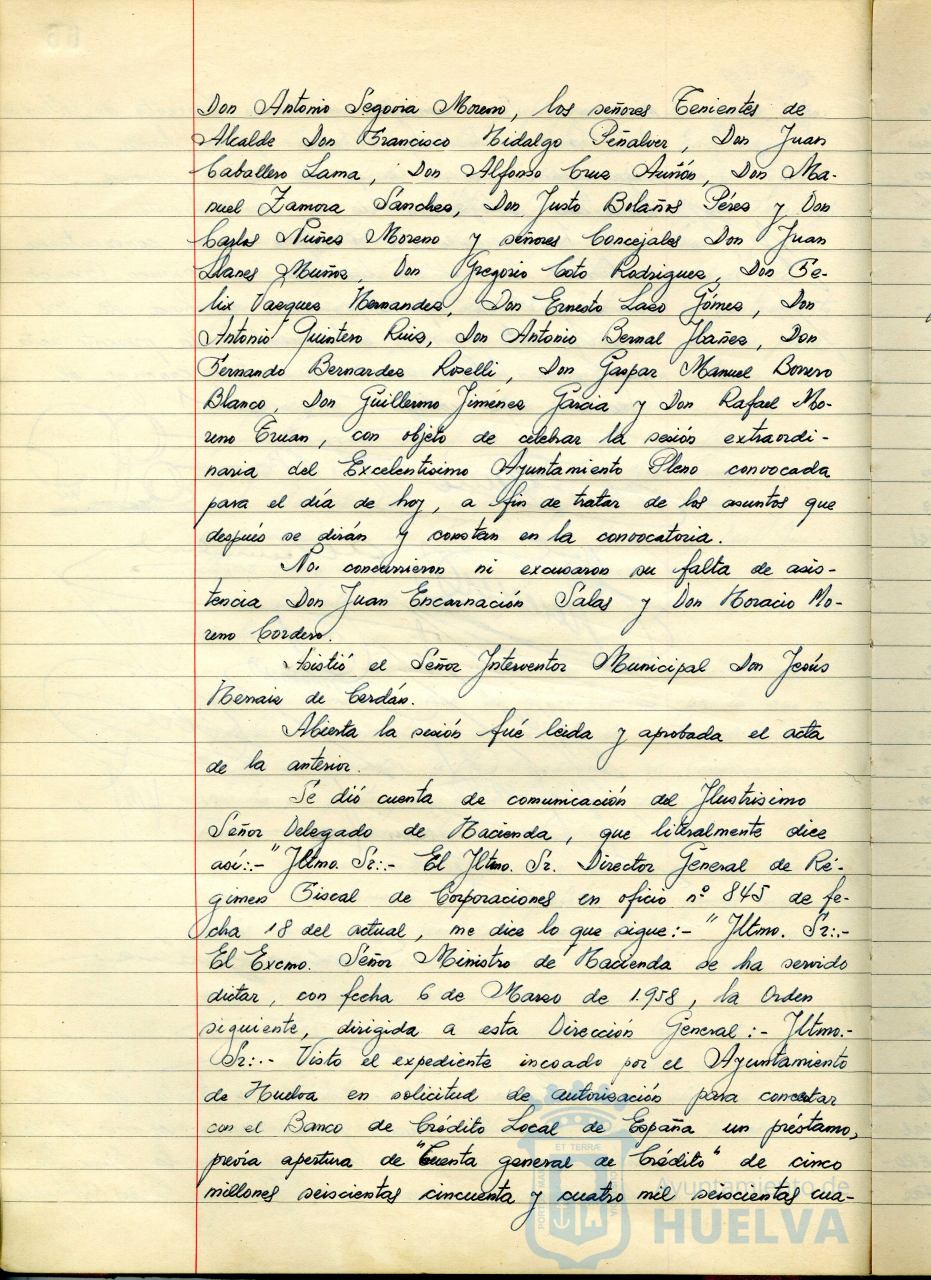 Don Antonio Segovia Moreno, los señores Tenientes de
Alcalde Don Francisco Hidalgo Peñalver, Don Juan
Caballero Lama, Don Alfonso Cruz Auñón, Don Ma-
nuel Zamora Sanchez, Don Justo Bolaños Pérez y Don
Carlos Nuñez Moreno y señores Concejales Don Juan
Llanes Muñoz, Don Gregorio Coto Rodriguez, Don Fe-
lix Vazquez Hernandez, Don Ernesto Lazo Gómez, Don
Antonio Quintero Ruiz, Don Antonio Bernal Ybañez, Don
Fernando Bernardez Roselli, Don Gaspar Manuel Borrero
Blanco, Don Guillermo Jiménez García y Don Rafael Mo-
reno Eruan, con objeto de celebrar la sesión extraordi-
naria del Excelentisimo Ayuntamiento Pleno convocada
para el día de hoy, a fin de tratar de los asuntos que
después se dirán y constan en la convocatoria.
No concurrieron ni excusaron su falta de asis-
tencia Don Juan Encarnación Salas y Don Horacio Mo-
reno Cordero.
Asistió el Señor Interventor Municipal Don Jesús
Hernaiz de Cerdán.
Abierta la sesión fué leida y aprobada el acta
de la anterior.
Se dió cuenta de comunicación del Ylustrisimo
Señor Delegado de Hacienda, que literalmente dice
así:-"Yltmo. Sr:.- El Yltmo. Sr. Director General de Ré-
gimen Fiscal de Corporaciones en oficio nº 845 de fe-
cha 18 del actual, me dice lo que sigue:-"Yltmo. Sr:.-
El Excmo. Señor Ministro de Hacienda se ha servido
dictar, con fecha 6 de Marzo de 1.958, la Orden
siguiente, dirigida a esta Dirección General:- Yltmo.-
Sr:.- Visto el expediente incoado por el Ayuntamiento
de Huelva en solicitud de autorización para concertar
con el Banco de Crédito Local de España un préstamo,
previa apertura de "Cuenta general de Crédito" de cinco
millones seiscientas cincuenta y cuatro mil seiscientas cua-
Ayuntamiento de
HUELVA